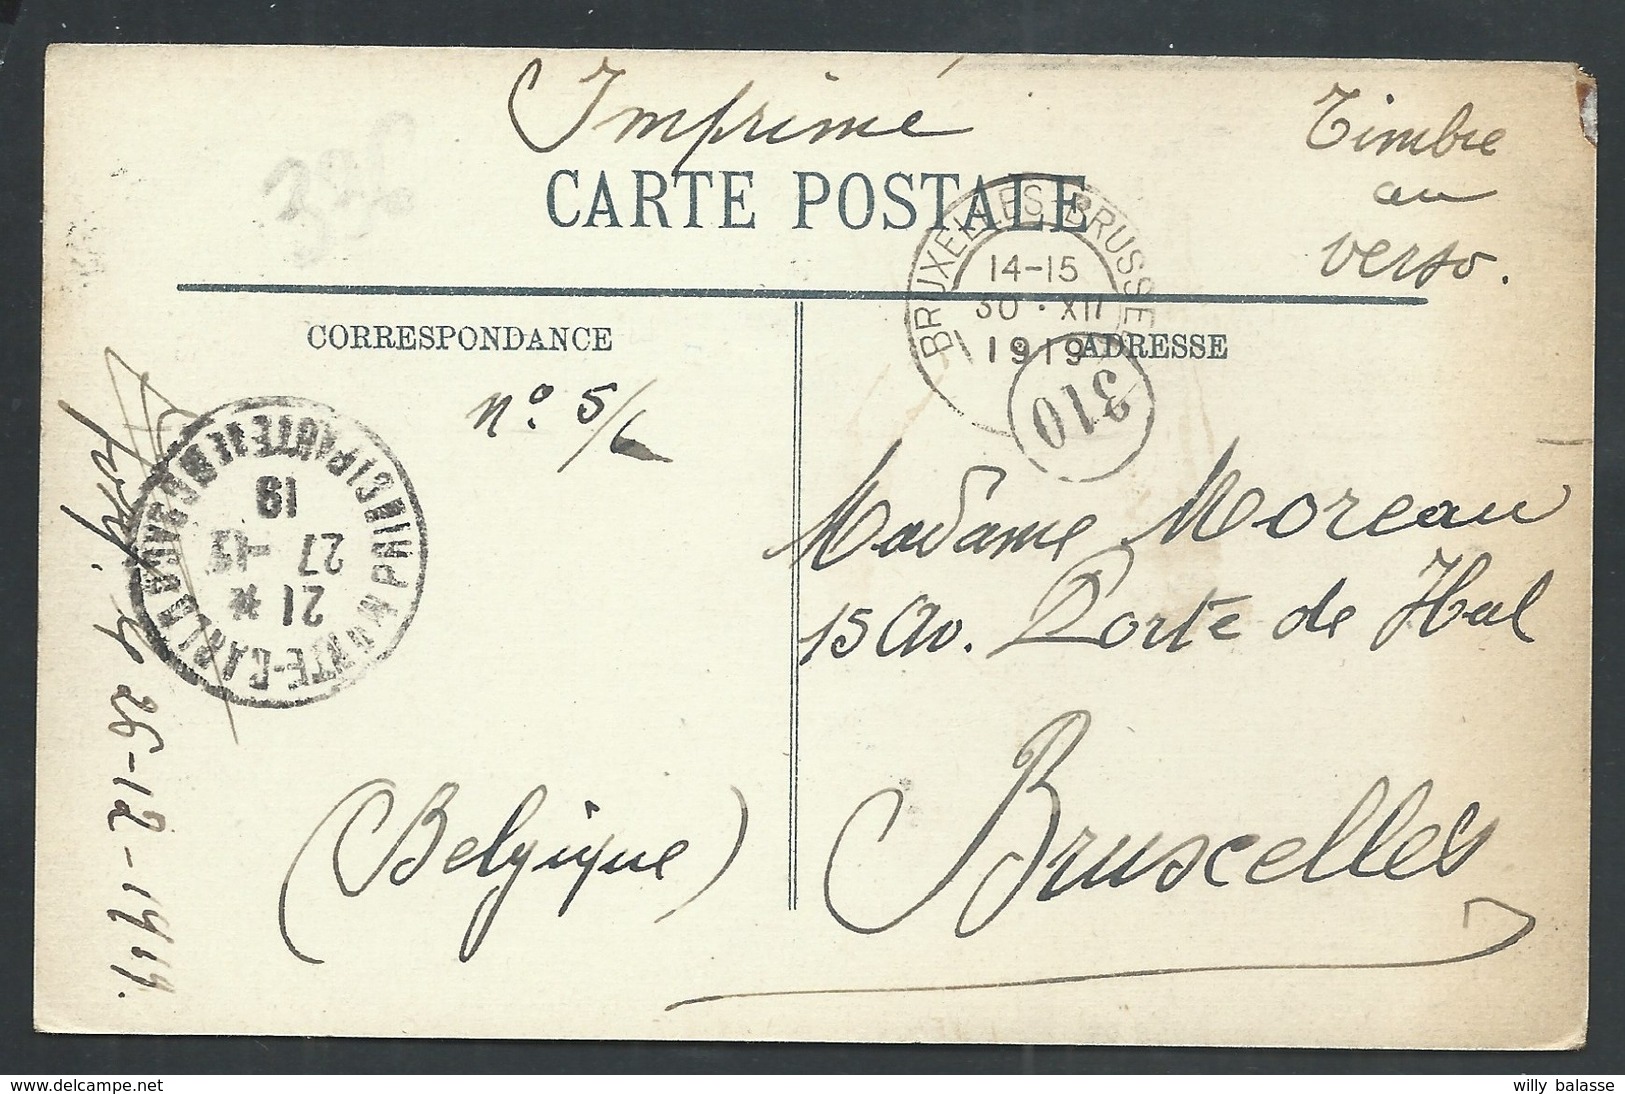 Imprimé
Timbre
au
verso.
CARTE POSTALE
BRUXELLES BRUSSEL
14-15
30 · XII
1919
310
CORRESPONDANCE
ADRESSE
nº. 5/
PRINCIPAUTE DE MONACO
MONTE-CARLO
21 *
27 -12
19
Madame Moreau
15 Av. Porte de Hal
Bruxelles
(Belgique)
26-12-1919.
willy balasse